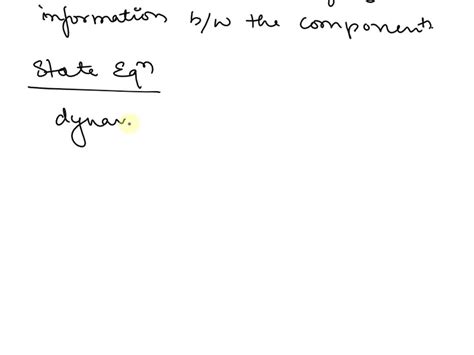 information b/w the components
State Eqn
dynam